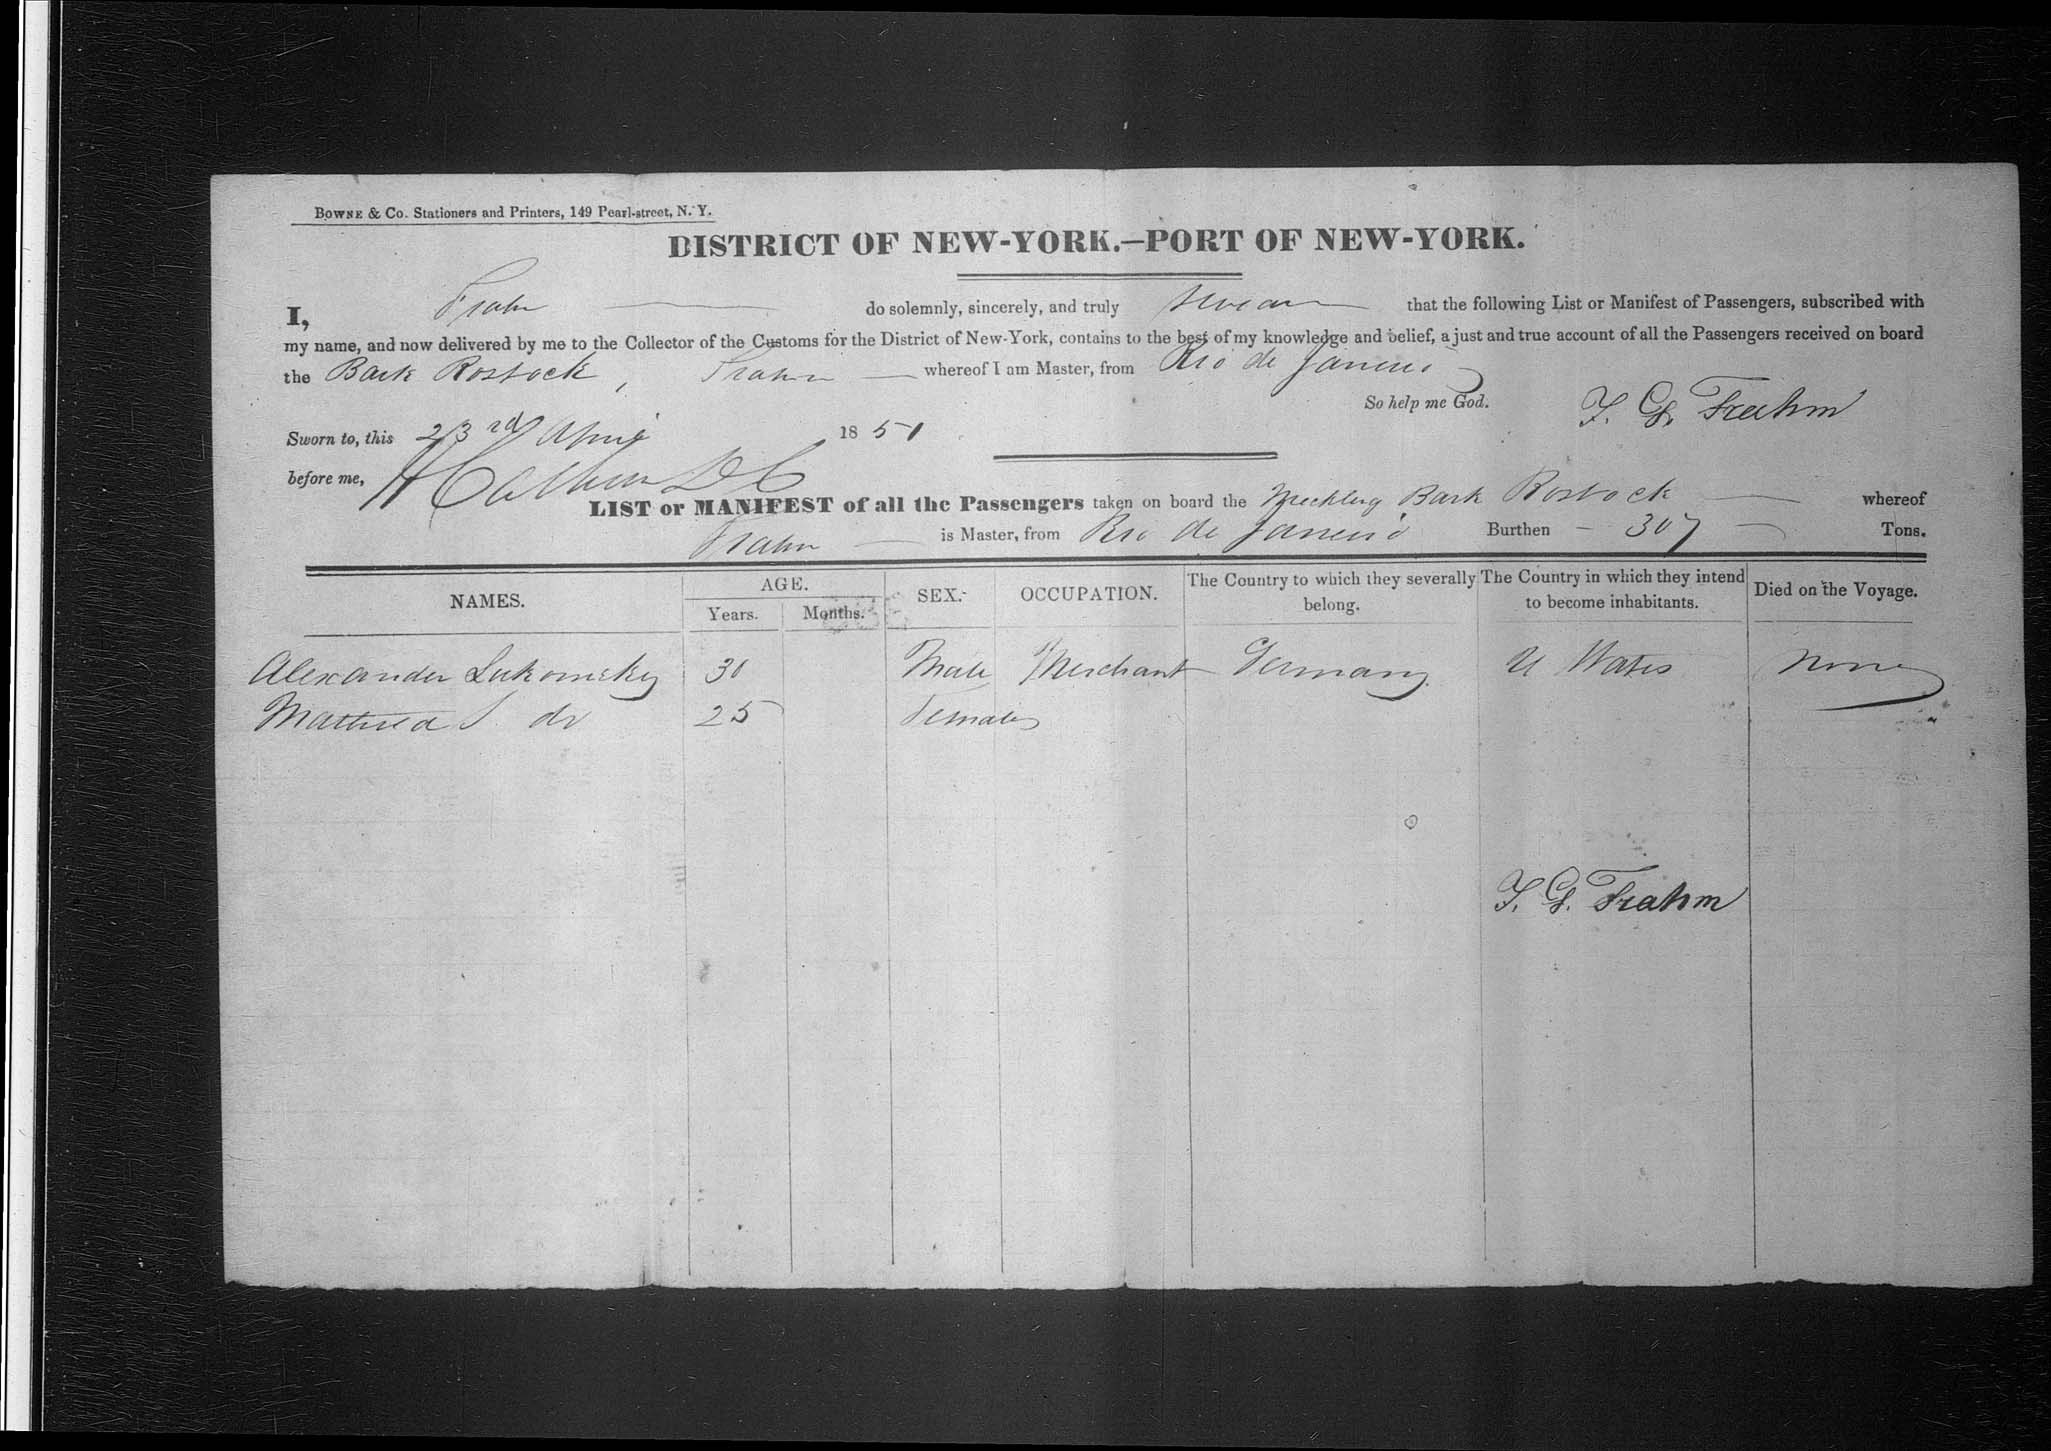 BOWNE & Co. Stationers and Printers, 149 Pearl-street, N. Y.
DISTRICT OF NEW-YORK.—PORT OF NEW-YORK.
I, Frahm do solemnly, sincerely, and truly swear that the following List or Manifest of Passengers, subscribed with
my name, and now delivered by me to the Collector of the Customs for the District of New-York, contains to the best of my knowledge and belief, a just and true account of all the Passengers received on board
the Bark Rostock, Frahm whereof I am Master, from Rio de Janeiro
So help me God. F. G. Frahm
Sworn to, this 23rd April 1851
before me,
LIST or MANIFEST of all the Passengers taken on board the Mecklbg Bark Rostock whereof
Frahm is Master, from Rio de Janeiro Burthen 307 Tons.
NAMES. AGE. Years. Months. SEX. OCCUPATION. The Country to which they severally belong. The Country in which they intend to become inhabitants. Died on the Voyage.
Alexander Lukomsky 30 Male Merchant Germany U States None
do 25 Female
F. G. Frahm